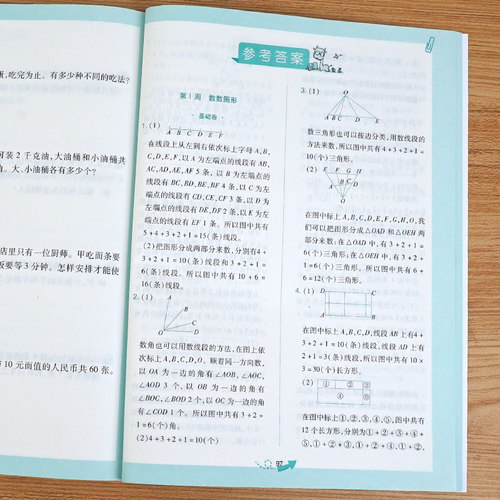 吃完为止。有多少种不同的吃法?
可装 2 千克油,大油桶和小油桶共
油。大、小油桶各有多少个?
店里只有一位厨师。甲吃面条要
要等 3 分钟。怎样安排才能使
10 元面值的人民币共 60 张。
参考答案
第 1 周 数数图形
·基础卷·
1. (1)
A B C D E F
在线段上从左到右依次标上字母 A,B,
C,D,E,F,以 A 为左端点的线段有 AB,
AC,AD,AE,AF 5 条,以 B 为左端点
的线段有 BC,BD,BE,BF 4 条,以 C 为左
端点的线段有 CD,CE,CF 3 条,以 D 为
左端点的线段有 DE,DF 2 条,以 E 为左
端点的线段有 EF 1 条。所以图中共有
5+4+3+2+1=15(条)线段。
(2)把图形分成两部分来数,分别有4+
3+2+1=10(条)线段和3+2+1=
6(条)线段。所以图中共有 10+6=
16(条)线段。
2. (1)
A
B
C
O D
数角也可以用数线段的方法,在图上依
次标上 A,B,C,D,O。顺着同一方向数,
以 OA 为一边的角有∠AOB,∠AOC,
∠AOD 3 个,以 OB 为一边的角有
∠BOC,∠BOD 2 个,以 OC 为一边的角
有∠COD 1 个。所以图中共有 3+2+
1=6(个)角。
(2)4+3+2+1=10(个)
3. (1)
O
A B C D E
数三角形也可以按边分类,用数线段的
方法来数,所以图中共有 4+3+2+1=
10(个)三角形。
(2)
E F G H
A B C D
O
在图中标上 A,B,C,D,E,F,G,H,O,我
们可以把图形分成△OAD 和△OEH 两
部分来数:在△OAD 中,有 3+2+1=
6(个)三角形;在△OEH 中,有 3+2+
1=6(个)三角形。所以图中共有 6+
6=12(个)三角形。
4. (1)
D C
A B
在图中标上 A,B,C,D,线段 AB 上有4+
3+2+1=10(条)线段,线段 AD 上有
2+1=3(条)线段。所以图中共有 10×
3=30(个)长方形。
(2)
① ② ③
④ ⑤
在图中标上①,②,③,④,⑤,图中共有
12 个长方形,分别为①+②+③+④+
⑤,①+②+③,①+②+④,①+②,
97